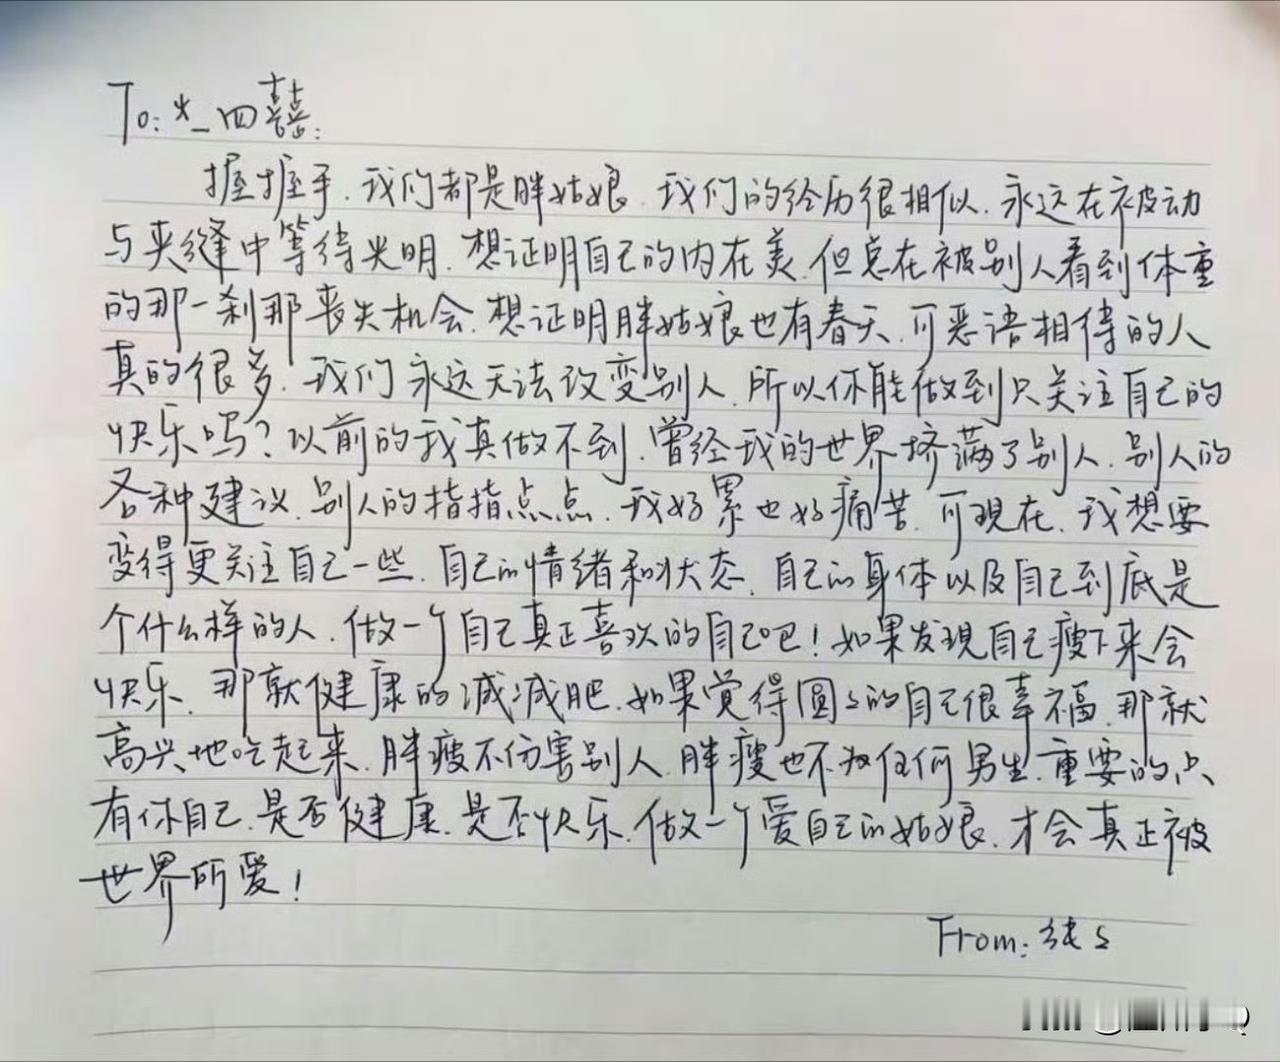 To: *_四囍:
握握手.我们都是胖姑娘.我们的经历很相似.永远在被动
与夹缝中等待光明.想证明自己的内在美.但总在被别人看到体重
的那一刹那丧失机会.想证明胖姑娘也有春天.可恶语相待的人
真的很多.我们永远无法改变别人.所以你能做到只关注自己的
快乐吗?以前的我真做不到.曾经我的世界挤满了别人.别人的
各种建议.别人的指指点点.我好累也好痛苦.可现在.我想要
变得更关注自己一些.自己的情绪和状态.自己的身体以及自己到底是
个什么样的人.做一个自己真正喜欢的自己吧!如果发现自己瘦下来会
快乐.那就健康的减减肥.如果觉得圆々的自己很幸福.那就
高兴地吃起来.胖瘦不伤害别人.胖瘦也不为任何男生.重要的只
有你自己.是否健康.是否快乐.做一个爱自己的姑娘.才会真正被
世界所爱!
From:纯々